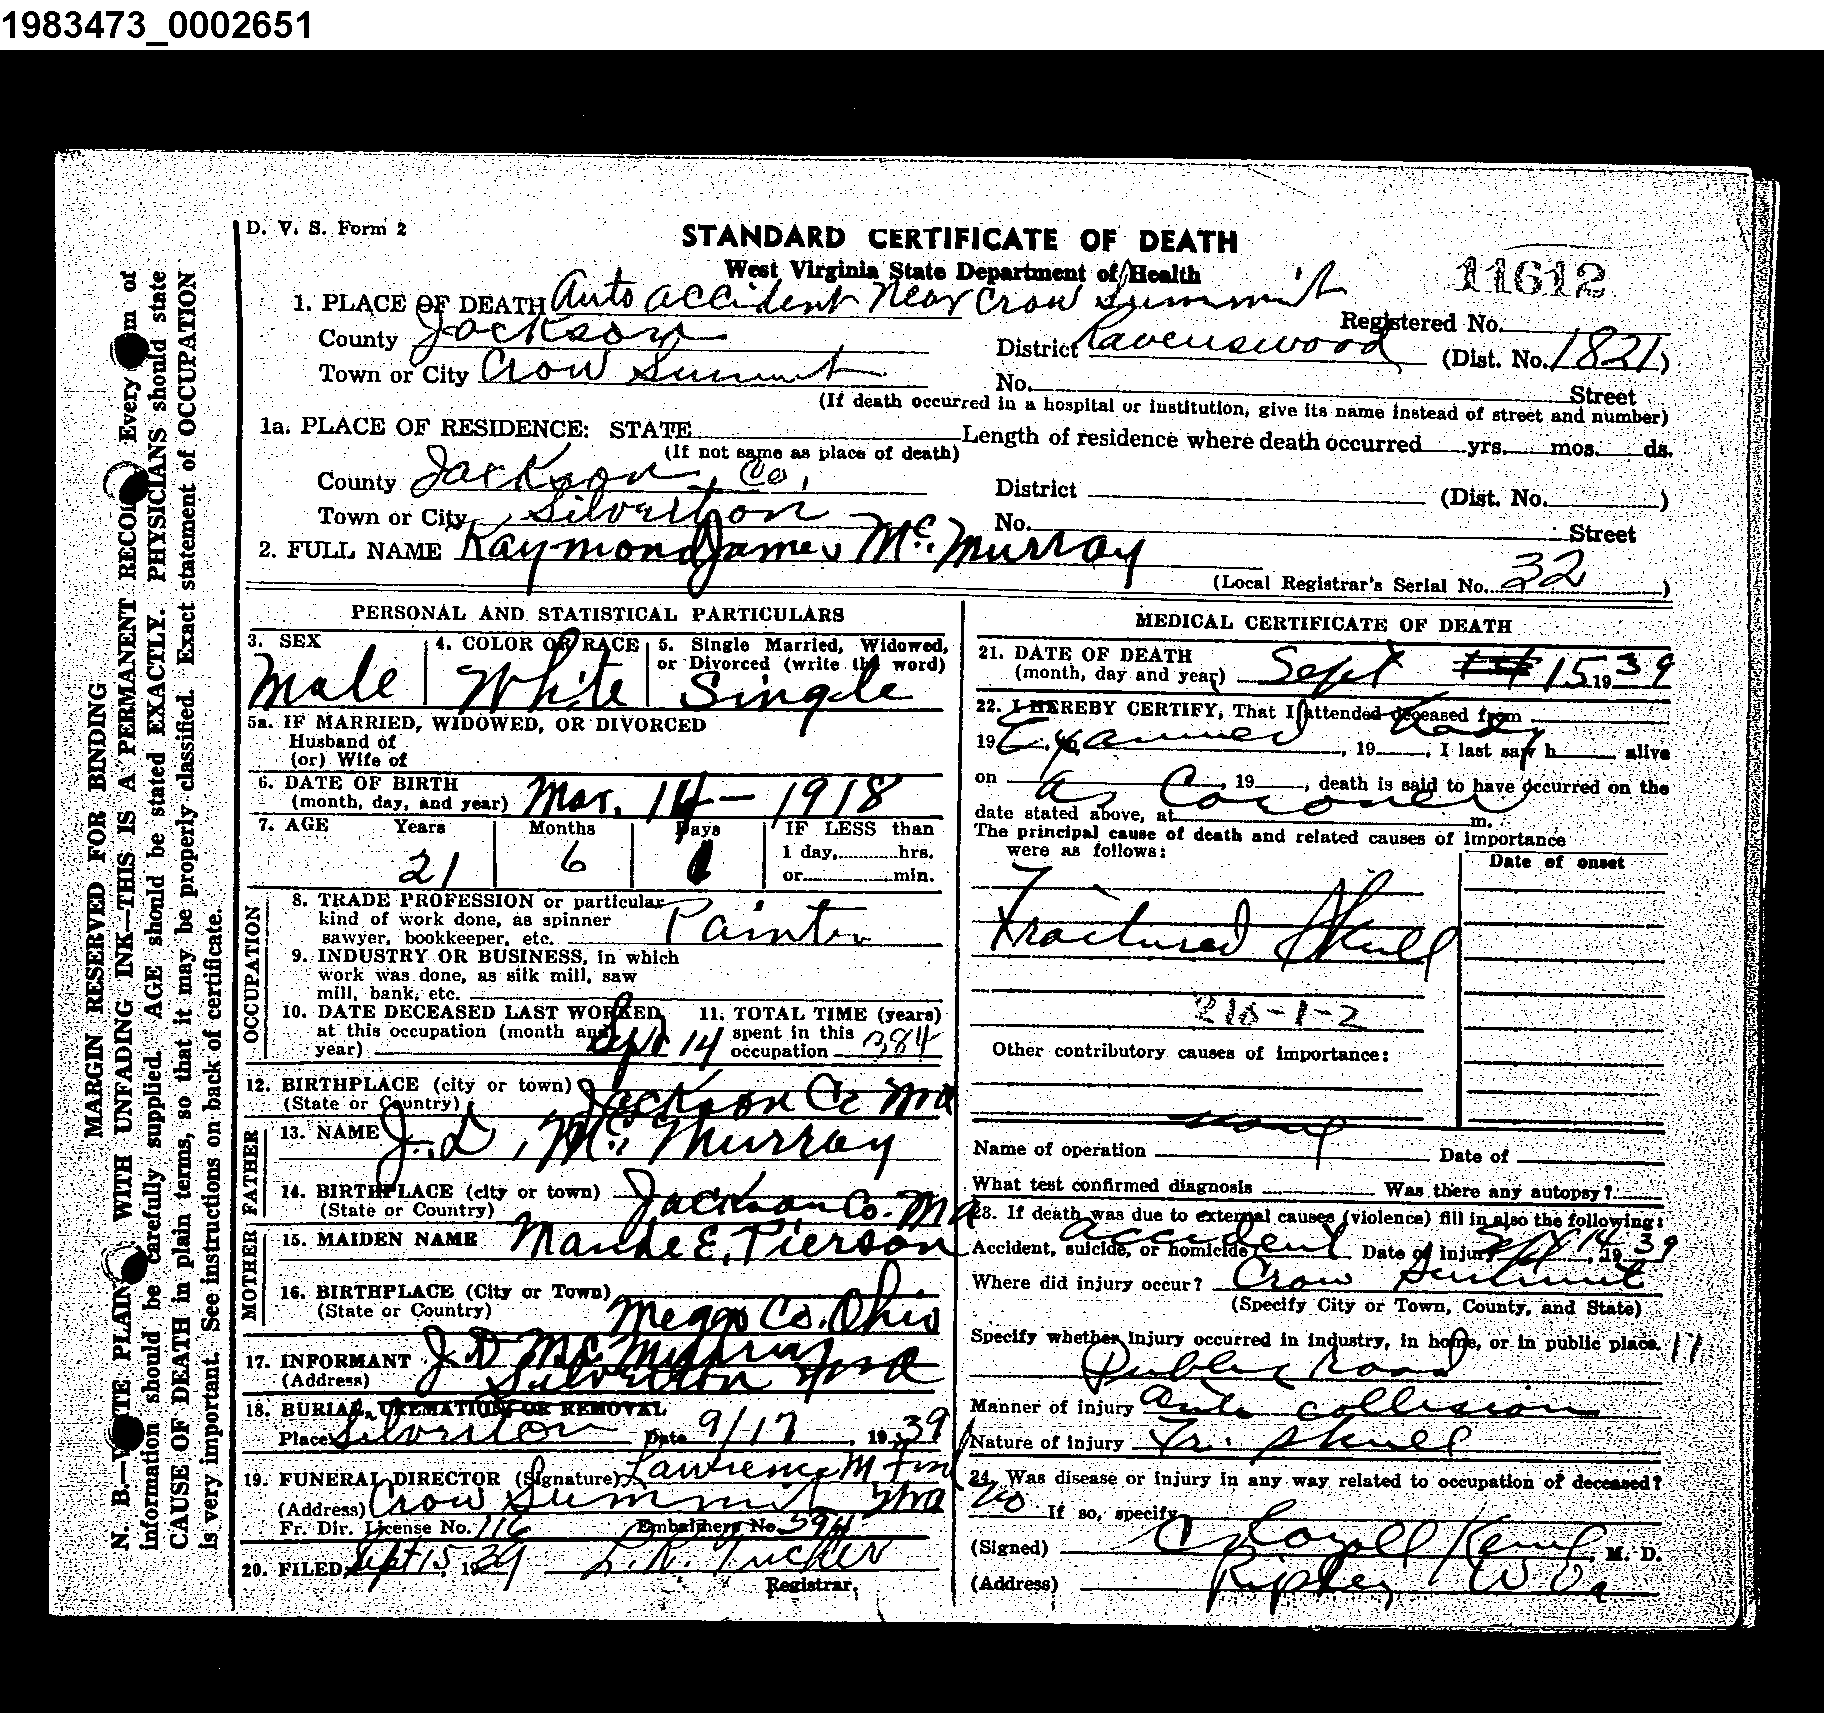 1983473_0002651
D. V. S. Form 2
STANDARD CERTIFICATE OF DEATH
West Virginia State Department of Health
11612
1. PLACE OF DEATH Auto accident Near Crow Summit
Registered No.
County Jackson District Ravenswood (Dist. No. 1821)
Town or City Crow Summit No. Street
(If death occurred in a hospital or institution, give its name instead of street and number)
1a. PLACE OF RESIDENCE: STATE Length of residence where death occurred yrs. mos. ds.
(If not same as place of death)
County Jackson Co, District (Dist. No. )
Town or City Silverton No. Street
2. FULL NAME Raymond James Mc. Murray
(Local Registrar's Serial No. 32 )
PERSONAL AND STATISTICAL PARTICULARS
3. SEX Male
4. COLOR OR RACE White
5. Single Married, Widowed, or Divorced (write the word) Single
5a. IF MARRIED, WIDOWED, OR DIVORCED
Husband of
(or) Wife of
6. DATE OF BIRTH
(month, day, and year) Mar. 14 - 1918
7. AGE Years Months Days IF LESS than
1 day, hrs.
21 6 1 or min.
OCCUPATION
8. TRADE PROFESSION or particular
kind of work done, as spinner
sawyer, bookkeeper, etc. Painter
9. INDUSTRY OR BUSINESS, in which
work was done, as silk mill, saw
mill, bank, etc.
10. DATE DECEASED LAST WORKED
at this occupation (month and
year) Sept 14
11. TOTAL TIME (years)
spent in this
occupation 384
12. BIRTHPLACE (city or town)
(State or Country) Jackson Co
FATHER
13. NAME J. D, Mc. Murray
14. BIRTHPLACE (city or town)
(State or Country) Jackson Co.
MOTHER
15. MAIDEN NAME Maude E. Pierson
16. BIRTHPLACE (City or Town)
(State or Country) Meggs Co. Ohio
17. INFORMANT J. D Mc. Murray
(Address) Silverton
18. BURIAL, CREMATION OR REMOVAL
Place Silverton Date 9/17, 1939
19. FUNERAL DIRECTOR (Signature) Lawrence M
(Address) Crow Summit
Fr. Dir. License No. 116 Embalmers No 594
20. FILED Sept 15, 1939 L. R. Tucker
Registrar,
MEDICAL CERTIFICATE OF DEATH
21. DATE OF DEATH
(month, day and year) Sept 15 1939
22. I HEREBY CERTIFY, That I attended deceased from
19 Examined body, 19, I last saw h alive
on as Coroner, 19, death is said to have occurred on the
date stated above, at m.
The principal cause of death and related causes of importance
were as follows:
Date of onset
Fractured Skull
210-1-2
Other contributory causes of importance:
none
Name of operation Date of
What test confirmed diagnosis Was there any autopsy?
23. If death was due to external causes (violence) fill in also the following:
Accident, suicide, or homicide accident Date of injury Sept 14, 1939
Where did injury occur? Crow Summit
(Specify City or Town, County, and State)
Specify whether injury occurred in industry, in home, or in public place. 17
Public road
Manner of injury auto collision
Nature of injury Fr. skull
24. Was disease or injury in any way related to occupation of deceased?
no If so, specify
(Signed) M. D.
(Address) Ripley W Va
MARGIN RESERVED FOR BINDING
N. B.—WRITE PLAINLY WITH UNFADING INK—THIS IS A PERMANENT RECORD Every item of
information should be carefully supplied. AGE should be stated EXACTLY. PHYSICIANS should state
CAUSE OF DEATH in plain terms, so that it may be properly classified. Exact statement of OCCUPATION
is very important. See instructions on back of certificate.